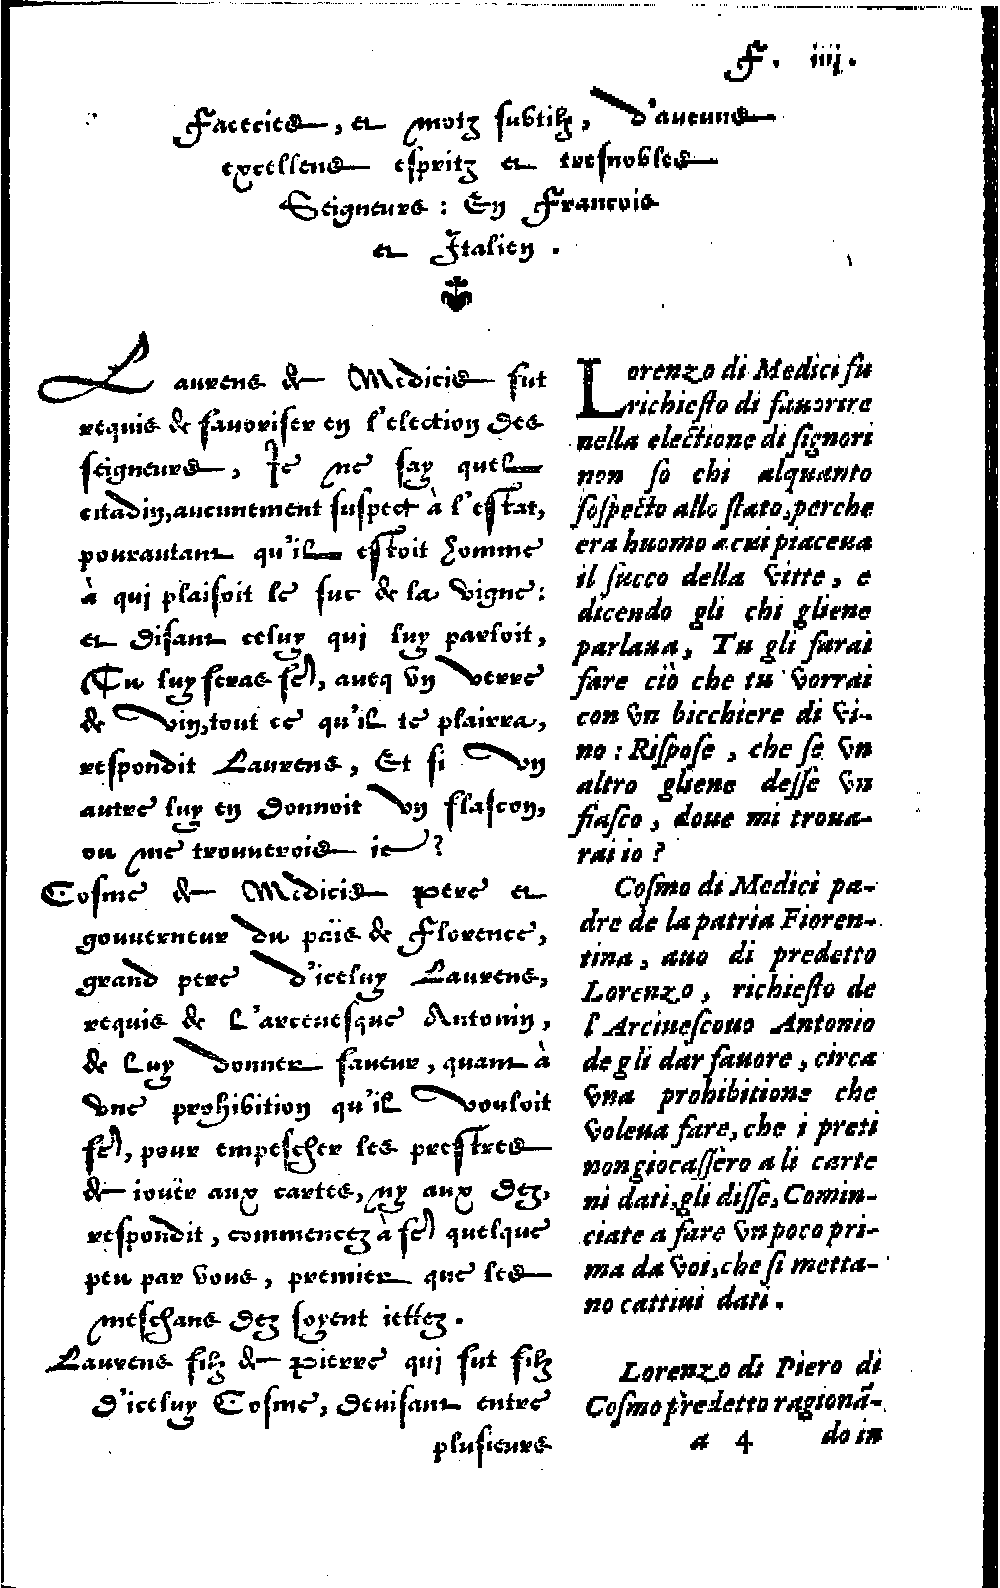 F. iiij.
Facecies, et motz subtilz, d'aucuns
excellens espritz et tresnobles
Seigneurs : En Francois
et Italien .
Laurens de Medicis fut
requis de favoriser en l'election des
seigneurs, Je ne say quel
citadin, aucunement suspect à l'estat,
pourautant qu'il estoit homme
à qui plaisoit le suc de la vigne:
et disant celuy qui luy parloit,
Tu luy feras fe), avecq vn verre
de vin, tout ce qu'il te plairra,
respondit Laurens, Et si vn
autre luy en donnoit vn flascon,
ou me trouverois ie ?
Cosme de Medicis pere et
gouverneur du païs de Florence,
grand pere d'iceluy Laurens,
requis de L'arcevesque Antonin,
de Luy donner faveur, quant à
vne prohibition qu'il vouloit
fe), pour empescher les prestres
de iouër aux cartes, ny aux dez,
respondit, commencez à fe) quelque
peu par vous, premier que les
meschans dez soyent iettez.
Laurens filz de Pierre qui fut filz
d'iceluy Cosme, devisant entre
plusieurs
Lorenzo di Medici fu
richiesto di fauorire
nella elettione di signori
non so chi alquanto
sospetto allo stato, perche
era huomo a cui piaceua
il succo della vitte, e
dicendo gli chi gliene
parlaua, Tu gli farai
fare ciò che tu vorrai
con vn bicchiere di vi-
no : Rispose, che se vn
altro gliene desse vn
fiasco, doue mi troua-
rai io ?
Cosmo di Medici pa-
dre de la patria Fioren-
tina, auo di predetto
Lorenzo, richiesto de
l'Arciuescouo Antonio
de gli dar fauore, circa
vna prohibitione che
voleua fare, che i preti
non giocassèro a li carte
ni dati, gli disse, Comin-
ciate a fare vn poco pri-
ma da voi, che si metta-
no cattiui dati.
Lorenzo di Piero di
Cosmo predetto ragionã-
a 4 do in